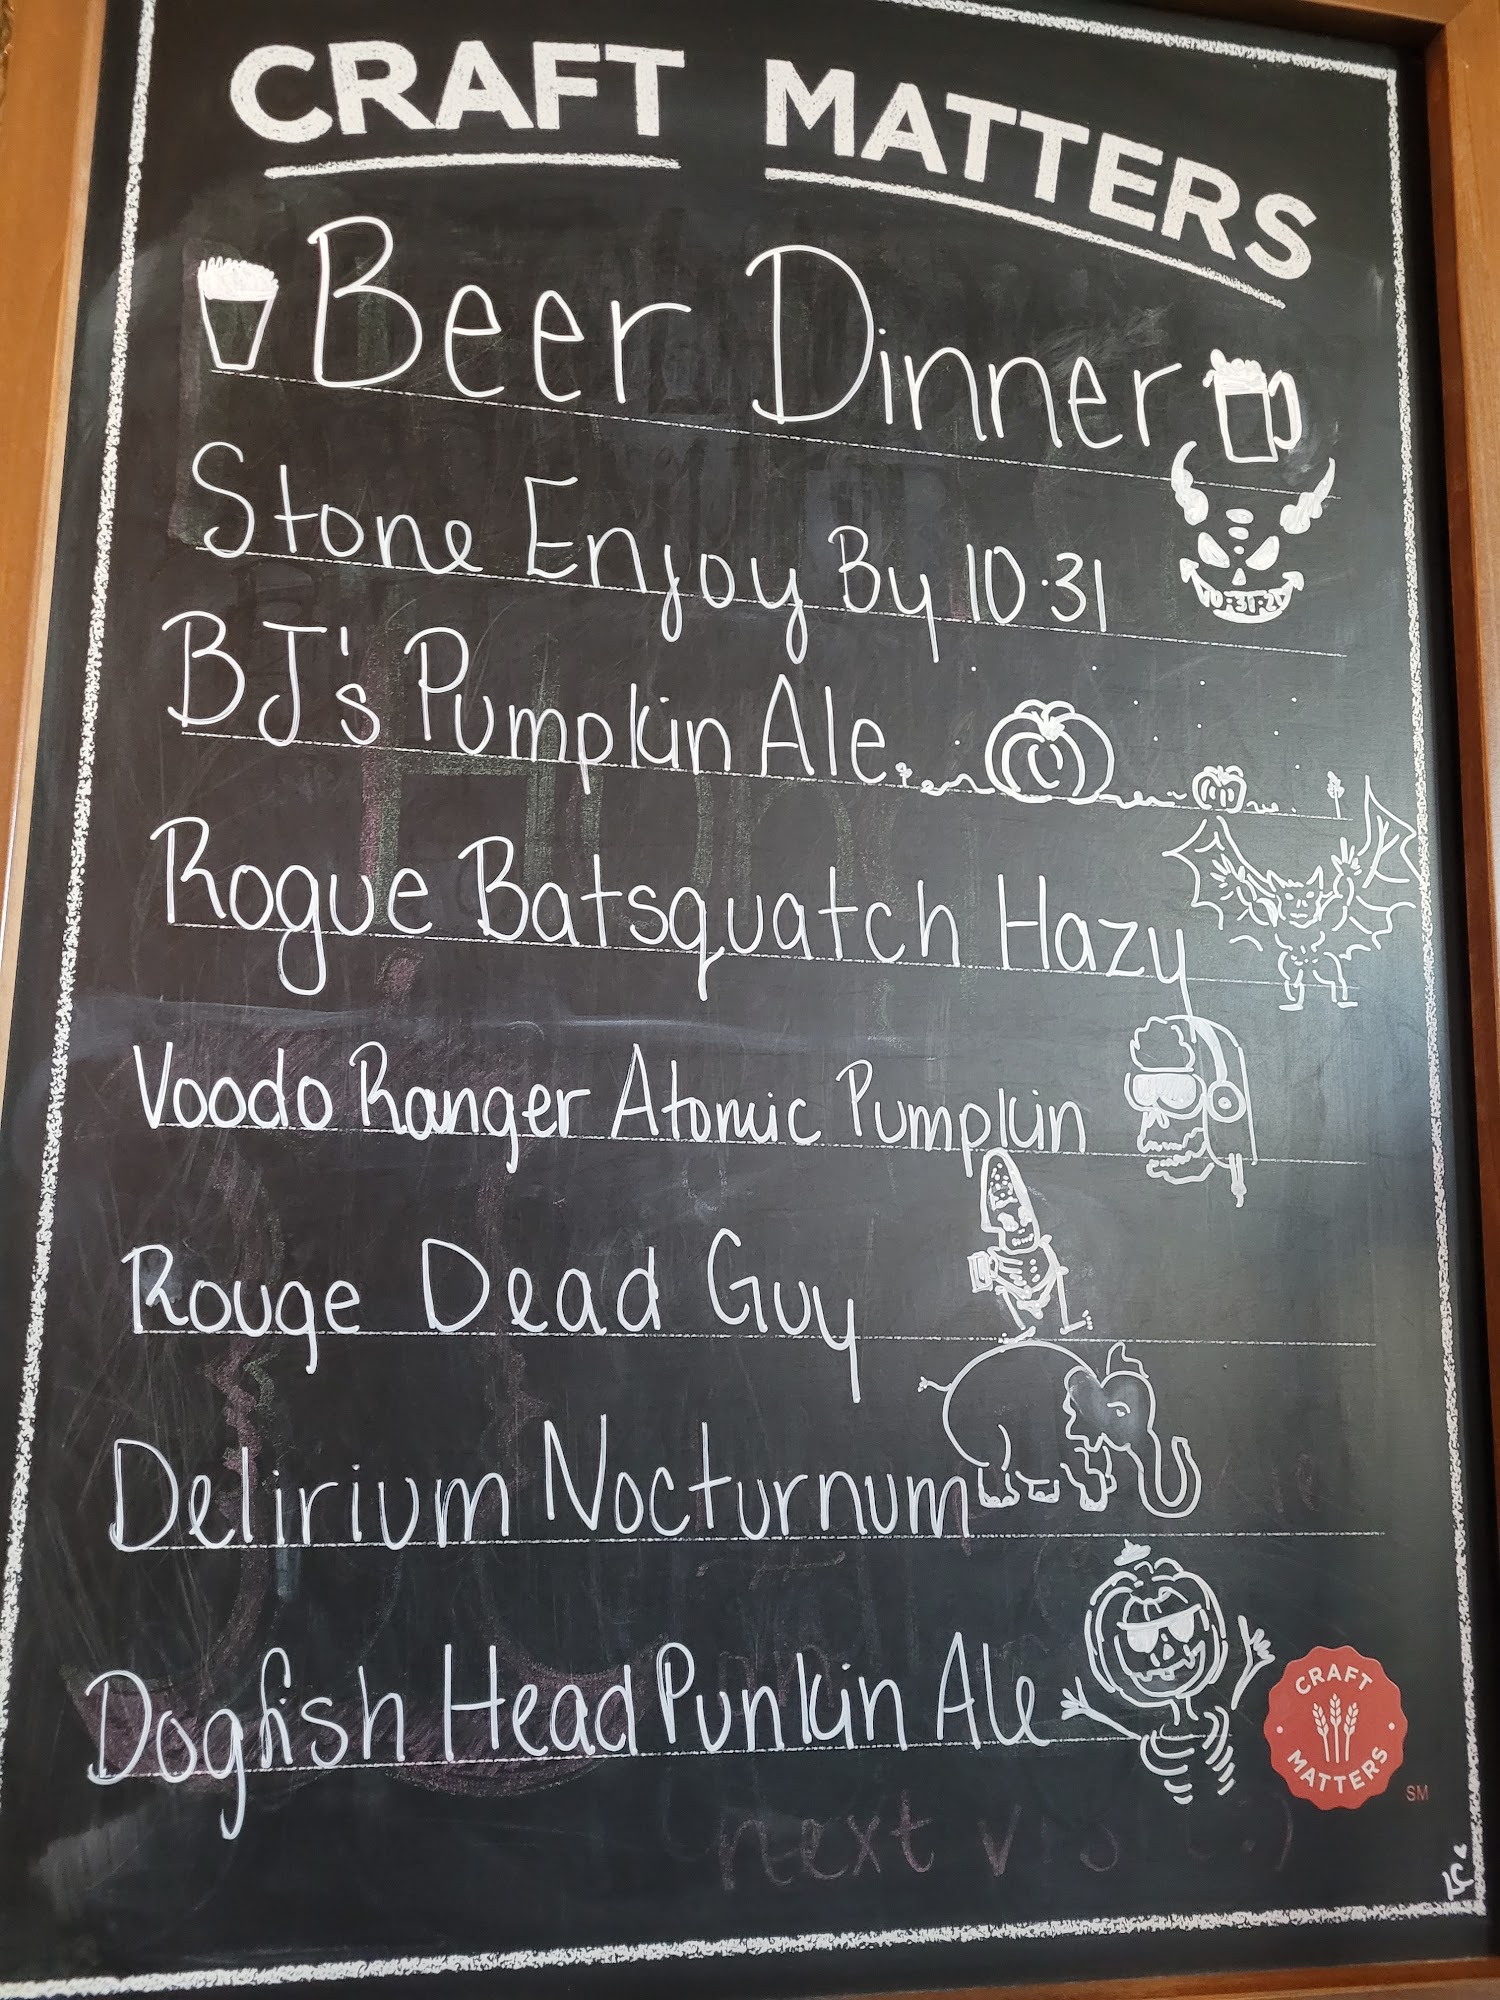 CRAFT MATTERS
Beer Dinner
Stone Enjoy By 10.31
BJ's Pumpkin Ale
Rogue Batsquatch Hazy
Voodo Ranger Atomic Pumpkin
Rouge Dead Guy
Delirium Nocturnum
Dogfish Head Punkin Ale
CRAFT
MATTERS
SM
next